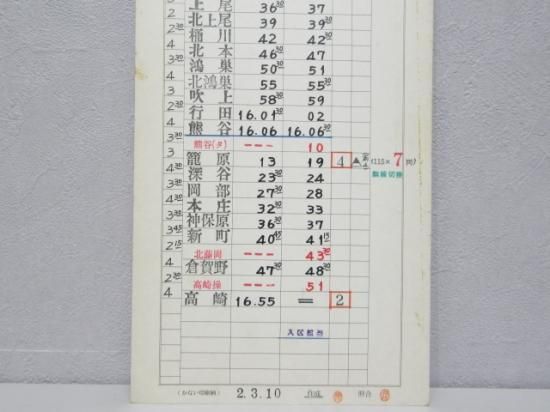 上尾 36 30 37
3 北上尾 39 39 30
桶川 42 42 30
北本 46 30 47
鴻巣 50 30 51
北鴻巣 55 55 30
吹上 58 30 59
行田 16.01 30 02
熊谷 16.06 16.06 30
3 30 熊谷(タ) --- 10
籠原 13 19 4 (115× 7 両)
深谷 23 30 24
4 岡部 27 30 28
本庄 32 30 33
神保原 36 30 37
3 45 新町 40 45 41 15
2 15 北藤岡 --- 43 30
4 倉賀野 47 30 48 30
2 30 高崎操 --- 51
4 高崎 16.55 = 2
入区担当
2.3.10 作成 照合